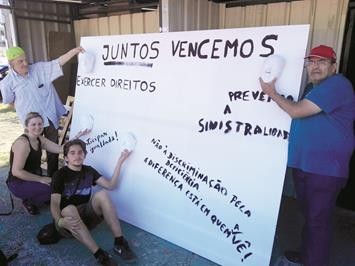 JUNTOS VENCEMOS
EXERCER DIREITOS
PREVENIR
A
SINISTRALIDADE
Participar
igualdade!
NÃO À DISCRIMINAÇÃO PELA
DEFICIÊNCIA
A DIFERENÇA ESTÁ EM QUEM
A/
VÊ!